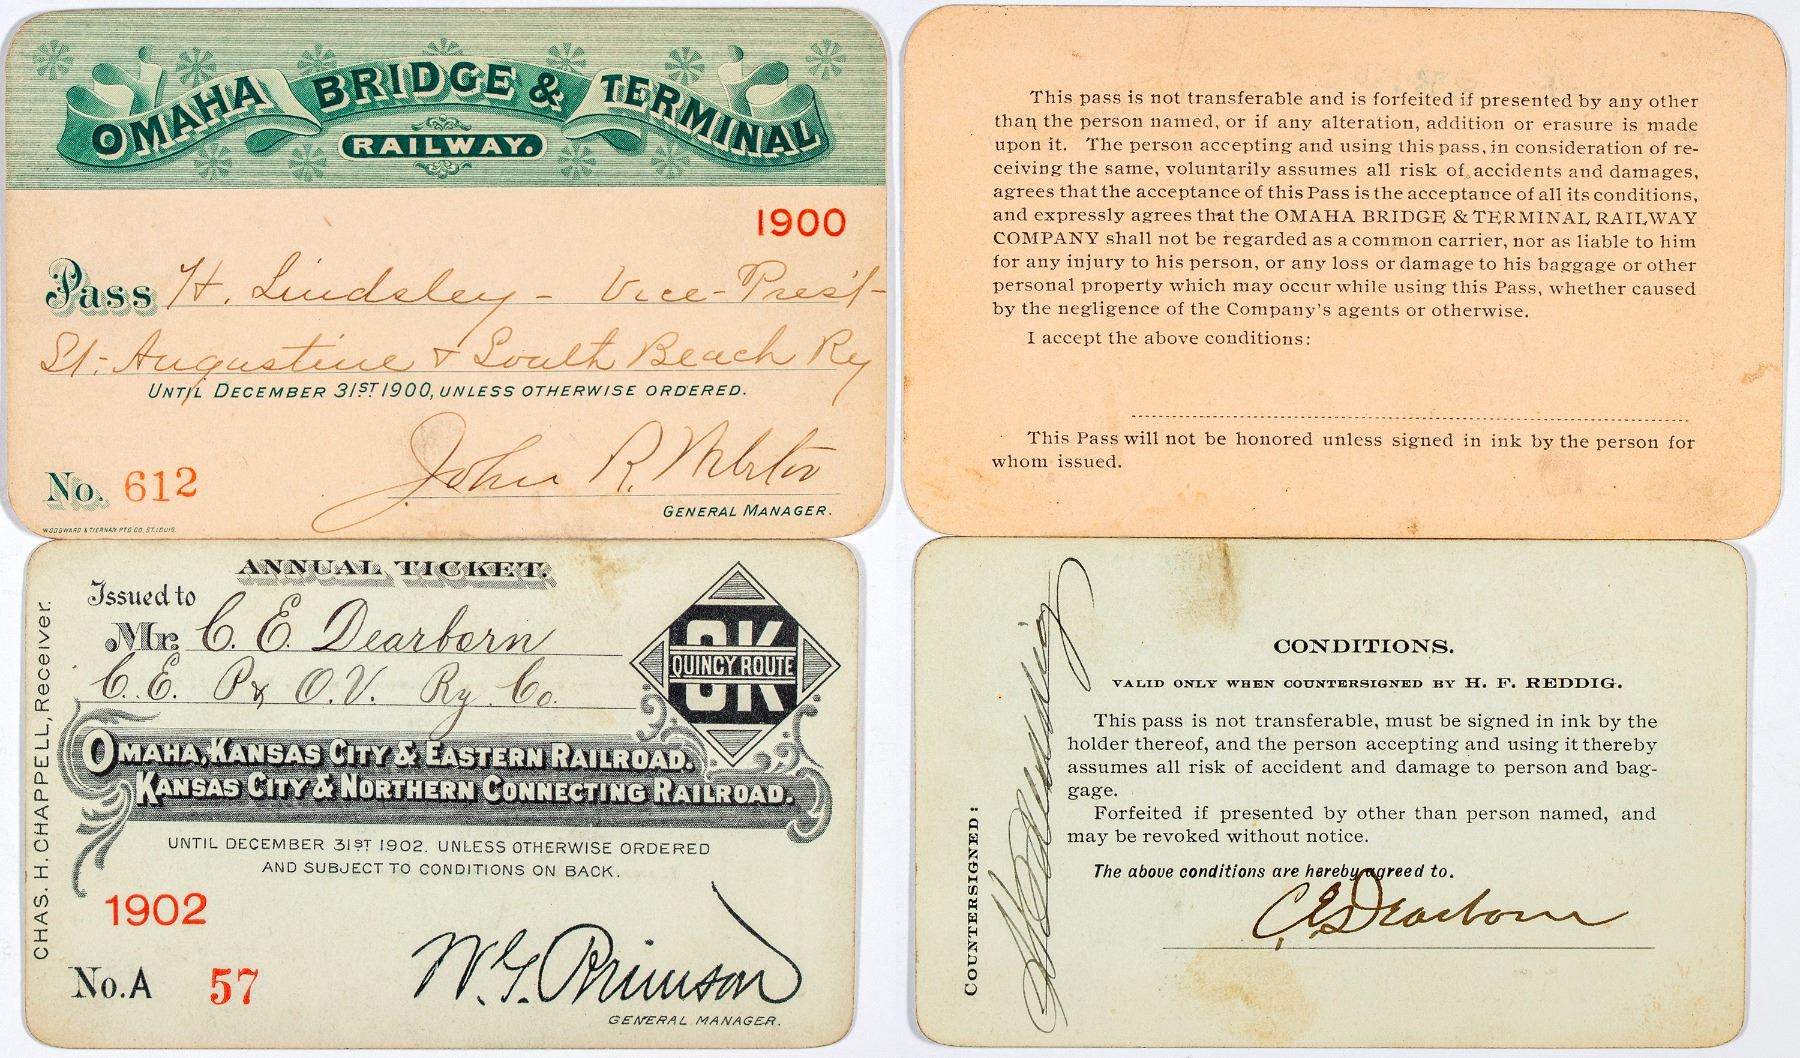 OMAHA BRIDGE & TERMINAL
RAILWAY.
1900
Pass H. Lindsley - Vice-Prest-
St. Augustine & South Beach Ry
UNTIL DECEMBER 31ST 1900, UNLESS OTHERWISE ORDERED.
No. 612
John R. Webster
GENERAL MANAGER.
WOODWARD & TIERNAN PTG. CO. ST. LOUIS.
This pass is not transferable and is forfeited if presented by any other
than the person named, or if any alteration, addition or erasure is made
upon it. The person accepting and using this pass, in consideration of re-
ceiving the same, voluntarily assumes all risk of accidents and damages,
agrees that the acceptance of this Pass is the acceptance of all its conditions,
and expressly agrees that the OMAHA BRIDGE & TERMINAL RAILWAY
COMPANY shall not be regarded as a common carrier, nor as liable to him
for any injury to his person, or any loss or damage to his baggage or other
personal property which may occur while using this Pass, whether caused
by the negligence of the Company's agents or otherwise.
I accept the above conditions:
This Pass will not be honored unless signed in ink by the person for
whom issued.
ANNUAL TICKET.
Issued to
Mr. C. E. Dearborn
C. E. P & O. V. Ry. Co.
OK
QUINCY ROUTE
OMAHA, KANSAS CITY & EASTERN RAILROAD.
KANSAS CITY & NORTHERN CONNECTING RAILROAD.
UNTIL DECEMBER 31ST 1902. UNLESS OTHERWISE ORDERED
AND SUBJECT TO CONDITIONS ON BACK.
1902
No. A 57
W. G. Brimson
GENERAL MANAGER.
CHAS. H. CHAPPELL, Receiver.
CONDITIONS.
VALID ONLY WHEN COUNTERSIGNED BY H. F. REDDIG.
This pass is not transferable, must be signed in ink by the
holder thereof, and the person accepting and using it thereby
assumes all risk of accident and damage to person and bag-
gage.
Forfeited if presented by other than person named, and
may be revoked without notice.
The above conditions are hereby agreed to.
C. E. Dearborn
COUNTERSIGNED:
H. F. Reddig